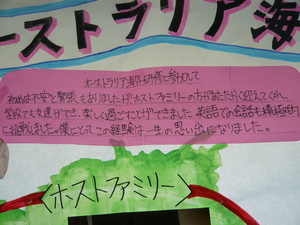 ーストラリア海
オーストラリア海外研修に参加して
初めは不安と緊張もありましたがホストファミリーの方があたたかく迎えてくれ、
学校でも友達ができ、楽しく過ごすことができました。英語での会話も積極的
に挑戦しました。僕にとって、この経験は一生の思い出になりました。
〈ホストファミリー〉